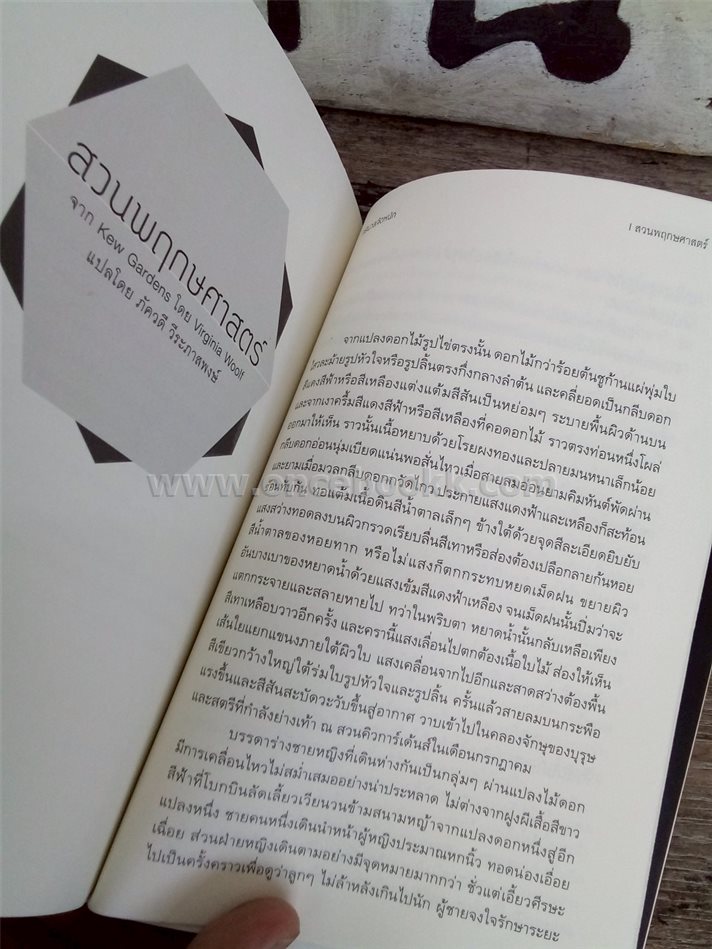 สวนพฤกษศาสตร์
จาก Kew Gardens โดย Virginia Woolf
แปลโดย ภัควดี วีระภาสพงษ์
| สวนพฤกษศาสตร์
จากแปลงดอกไม้รูปไข่ตรงนั้น ดอกไม้กว่าร้อยต้นชูก้านแผ่พุ่มใบ
ไสวละม้ายรูปหัวใจหรือรูปลิ้นตรงกึ่งกลางลำต้น และคลี่ยอดเป็นกลีบดอก
สีแดงสีฟ้าหรือสีเหลืองแต่งแต้มสีสันเป็นหย่อมๆ ระบายพื้นผิวด้านบน
และจากเงาครึ้มสีแดงสีฟ้าหรือสีเหลืองที่คอดอกไม้ ราวตรงท่อนหนึ่งโผล่
ออกมาให้เห็น ราวนั้นเนื้อหยาบด้วยโรยผงทองและปลายมนหนาเล็กน้อย
กลีบดอกอ่อนนุ่มเบียดแน่นพอสั่นไหวเมื่อสายลมอ่อนยามคิมหันต์พัดผ่าน
และยามเมื่อมวลกลีบดอกกวัดไกวประกายแสงแดงฟ้าและเหลืองก็สะท้อน
ซ้อนทับกัน ทอแต้มเนื้อดินสีน้ำตาลเล็กๆ ข้างใต้ด้วยจุดสีละเอียดยิบยับ
แสงสว่างทอดลงบนผิวกรวดเรียบลื่นสีเทาหรือส่องต้องเปลือกลายก้นหอย
สีน้ำตาลของหอยทาก หรือไม่แสงก็ตกกระทบหยดเม็ดฝน ขยายผิว
อันบางเบาของหยาดน้ำด้วยแสงเข้มสีแดงฟ้าเหลือง จนเม็ดฝนนั้นปิ่มว่าจะ
แตกกระจายและสลายหายไป ทว่าในพริบตา หยาดน้ำนั้นกลับเหลือเพียง
สีเทาเหลือบวาวอีกครั้ง และครานี้แสงเลื่อนไปตกต้องเนื้อใบไม้ ส่องให้เห็น
เส้นใยแยกแขนงภายใต้ผิวใบ แสงเคลื่อนจากไปอีกและสาดสว่างต้องพื้น
สีเขียวกว้างใหญ่ใต้ร่มใบรูปหัวใจและรูปลิ้น ครั้นแล้วสายลมบนกระพือ
แรงขึ้นและสีสันสะบัดวะวับขึ้นสู่อากาศ วาบเข้าไปในคลองจักษุของบุรุษ
และสตรีที่กำลังย่างเท้า ณ สวนคิวการ์เด้นส์ในเดือนกรกฎาคม
บรรดาร่างชายหญิงที่เดินห่างกันเป็นกลุ่มๆ ผ่านแปลงไม้ดอก
มีการเคลื่อนไหวไม่สม่ำเสมออย่างน่าประหลาด ไม่ต่างจากฝูงผีเสื้อสีขาว
สีฟ้าที่โบกบินลัดเลี้ยวเวียนวนข้ามสนามหญ้าจากแปลงดอกหนึ่งสู่อีก
แปลงหนึ่ง ชายคนหนึ่งเดินนำหน้าผู้หญิงประมาณหกนิ้ว ทอดน่องเอื่อย
เฉื่อย ส่วนฝ่ายหญิงเดินตามอย่างมีจุดหมายมากกว่า ชั่วแต่เอี้ยวศีรษะ
ไปเป็นครั้งคราวเพื่อดูว่าลูกๆ ไม่ล้าหลังเกินไปนัก ผู้ชายจงใจรักษาระยะ